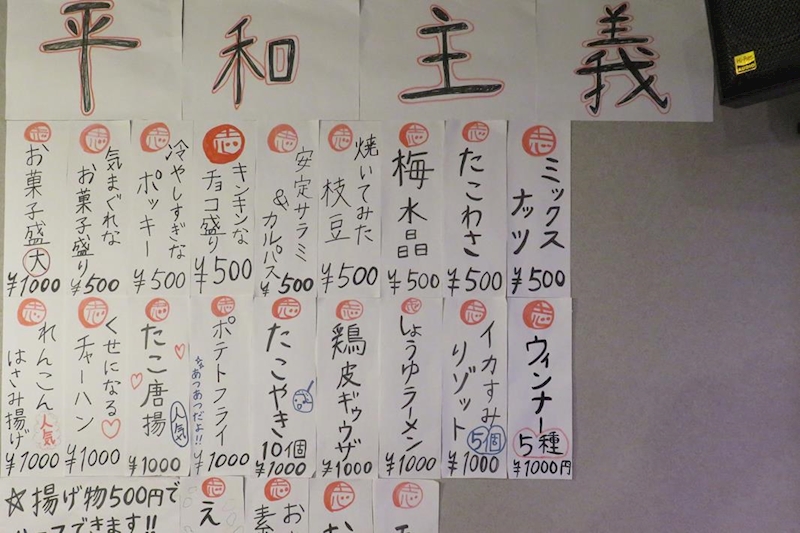 平和主義
志
お菓子盛
大
¥1000
志
気まぐれな
お菓子盛り
¥500
志
冷やしすぎな
ポッキー
¥500
志
キンキンな
チョコ盛り
¥500
志
安定サラミ
&カルパス
¥500
志
焼いてみた
枝豆
¥500
志
梅水晶
¥500
志
たこわさ
¥500
志
ミックス
ナッツ
¥500
志
れんこん
はさみ揚げ
人気
¥1000
志
くせになる
チャーハン
¥1000
志
たこ唐揚
人気
¥1000
志
ポテトフライ
あつあつだよ!!
¥1000
志
たこやき
10個
¥1000
志
鶏皮ギョウザ
¥1000
志
しょうゆラーメン
¥1000
志
イカすみ
リゾット
5個
¥1000
志
ウィンナー
5種
¥1000円
☆揚げ物500円で
できます!!
志
え
志
お
素
志
志